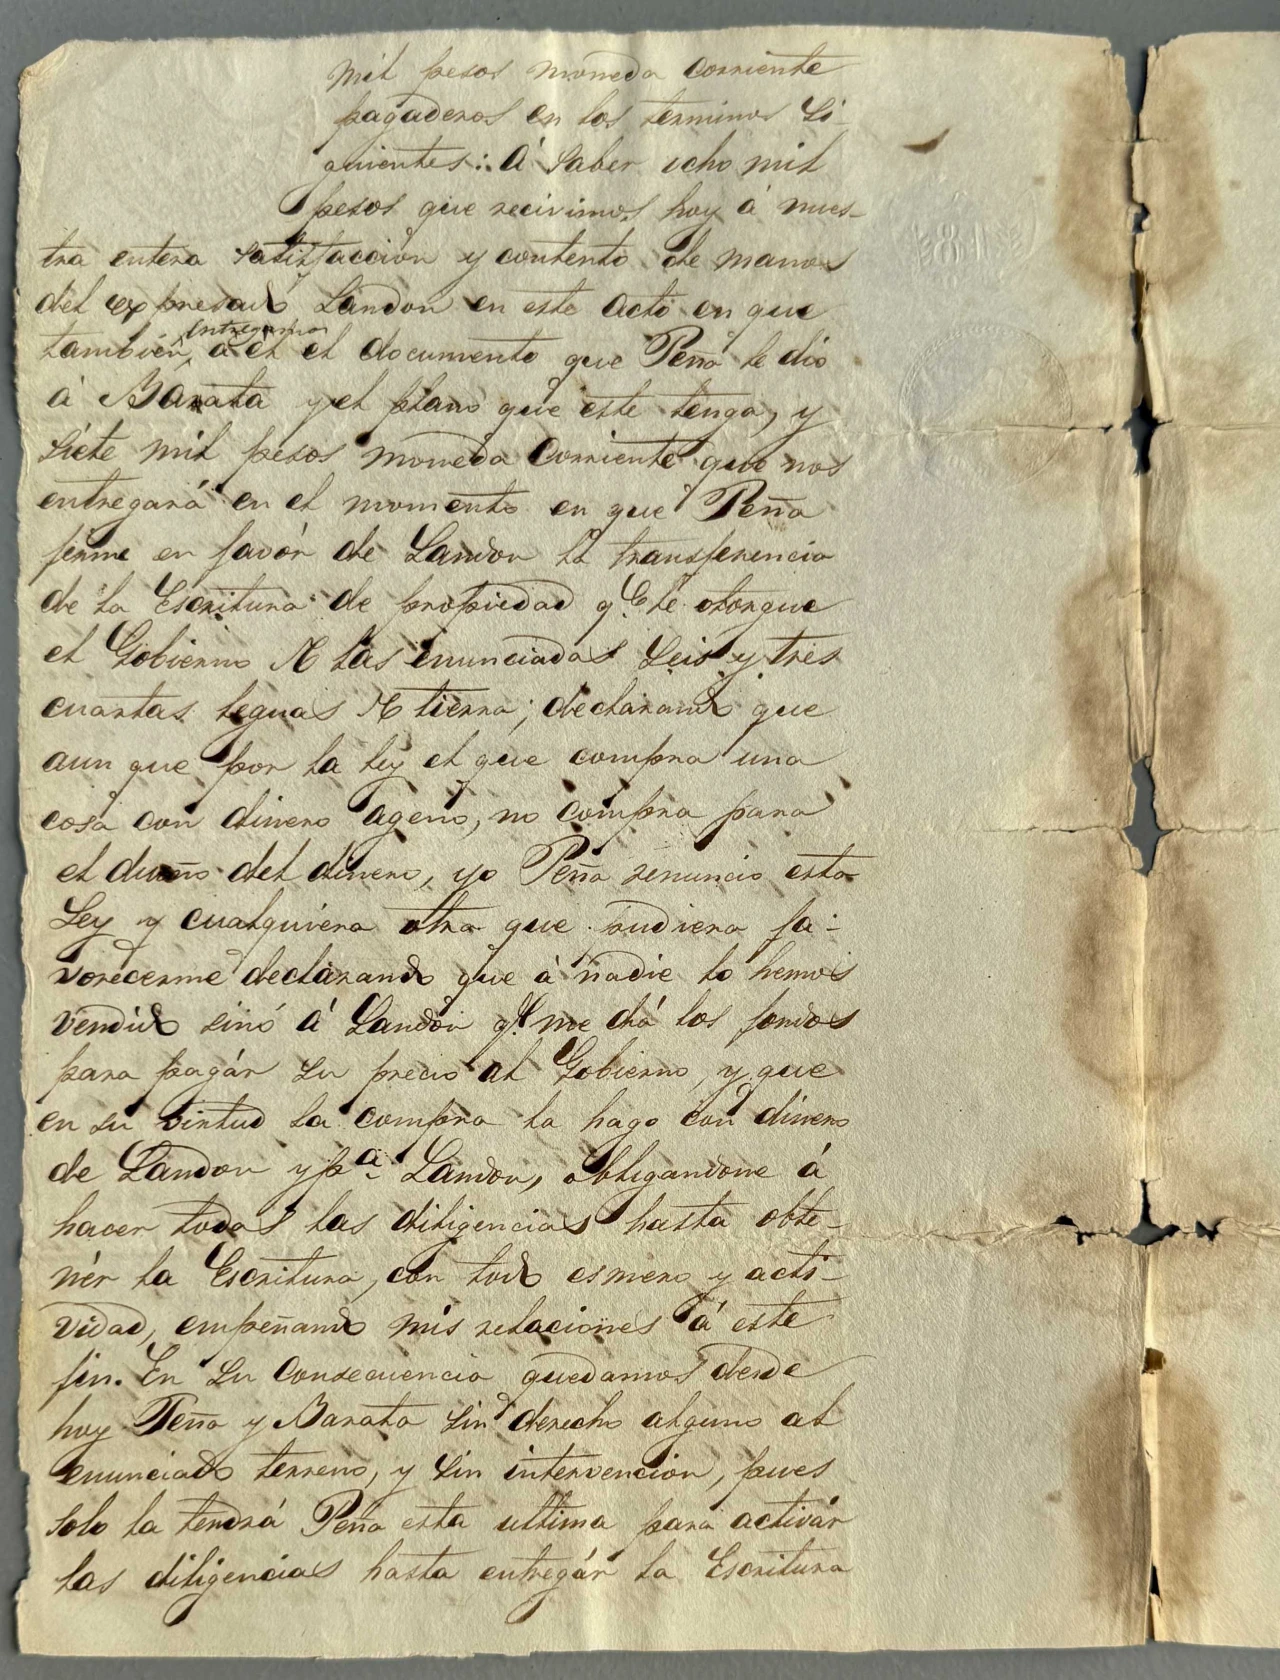 mil pesos moneda corriente
pagaderos en los terminos Si-
guientes: Á Saber ocho mil
pesos que recivimos hoy á nues-
tra entera satisfaccion y contento de manos
del expresado Landon en este acto en que
entregamos
tambien, a él el documento que Peña le dió
á Barata y el plano que este tenga, y
Siete mil pesos moneda Corriente que nos
entregará en el momento en que Peña
firme en favór de Landon la transferencia
de la Escritura de propiedad q.e le otorgue
el Gobierno de las enunciadas Seis y tres
cuartas leguas de tierra; declarando que
aun que por la ley el que compra una
cosa con dinero ageno, no compra para
el dueño del dinero, yo Peña renuncio esta
Ley y cualquiera otra que pudiera fa-
vorecerme declarando que á nadie lo hemos
vendido sinó á Landon q.e me dá los fondos
para pagár su precio al Gobierno, y que
en su virtud la compra la hago con dinero
de Landon y p.a Landon, obligandome á
hacer todas las diligencias hasta obte-
nér la Escritura, con todo esmero y acti-
vidad, empeñando mis relaciones á este
fin. En su Consecuencia quedamos desde
hoy Peña y Barata sin derecho alguno al
enunciado terreno, y sin intervencion, pues
solo la tendrá Peña esta ultima para activár
las diligencias hasta entregár la Escritura